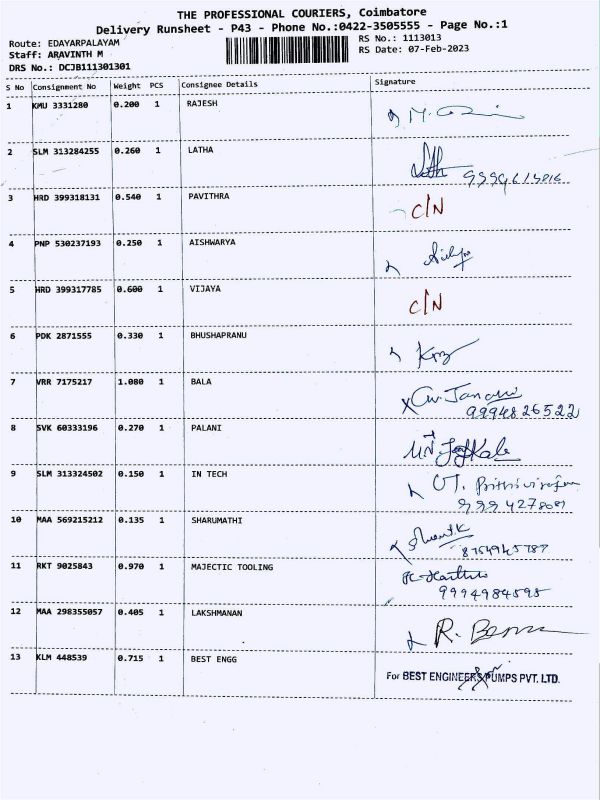 THE PROFESSIONAL COURIERS, Coimbatore
Delivery Runsheet - P43 - Phone No.:0422-3505555 - Page No.:1
Route: EDAYARPALAYAM RS No.: 1113013
Staff: ARAVINTH M RS Date: 07-Feb-2023
DRS No.: DCJB111301301
S No Consignment No Weight PCS Consignee Details Signature
1 KMU 3331280 0.200 1 RAJESH
2 SLM 313284255 0.260 1 LATHA
3 HRD 399318131 0.540 1 PAVITHRA C/N
4 PNP 530237193 0.250 1 AISHWARYA
5 HRD 399317785 0.600 1 VIJAYA C/N
6 PDK 2871555 0.330 1 BHUSHAPRANU
7 VRR 7175217 1.080 1 BALA
9994826522
8 SVK 60333196 0.270 1 PALANI
9 SLM 313324502 0.150 1 IN TECH
10 MAA 569215212 0.135 1 SHARUMATHI
11 RKT 9025843 0.970 1 MAJECTIC TOOLING
9994984595
12 MAA 298355057 0.405 1 LAKSHMANAN
13 KLM 448539 0.715 1 BEST ENGG
For BEST ENGINEERS PUMPS PVT. LTD.